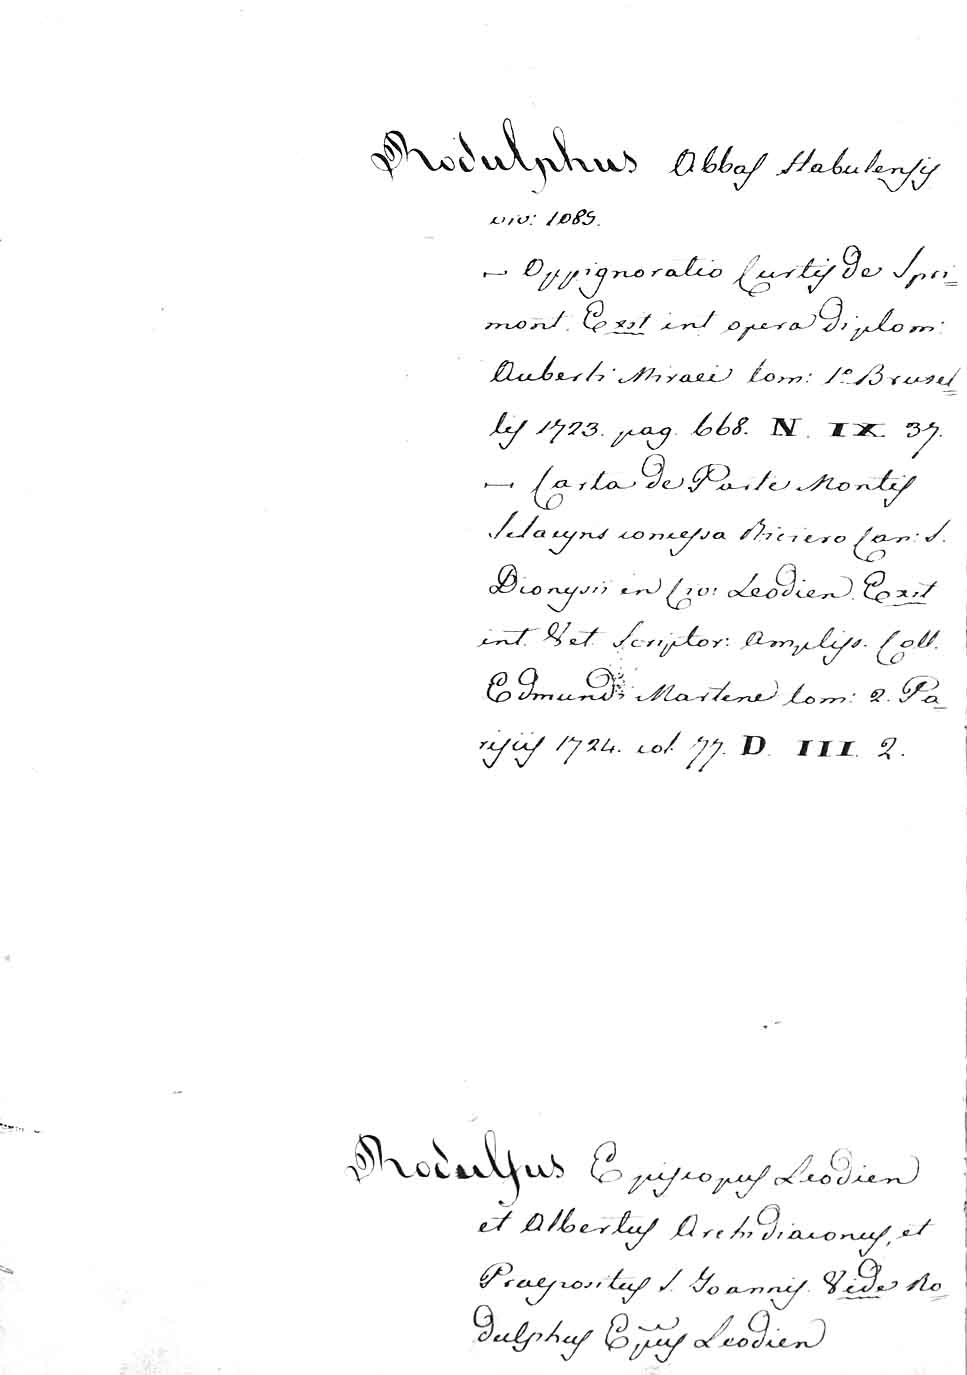 Rodulphus Abbas Stabulensis
viv: 1085.
— Oppignoratio Curtis de Spri=
mont. Exst int opera diplom:
Auberti Miraei tom: 1º Bruxel=
lis 1723. pag. 668. N. IX. 37.
— Carta de Parte Montis
Selacyns concessa Riciero Can: S.
Dionysii in Civ: Leodien. Exst
int. Vet. Scriptor: Ampliss. Coll.
Edmundi Martene tom: 2. Pa=
risiis 1724. col. 77. D. III. 2.
Rodulfus Episcopus Leodien
et Albertus Archidiaconus, et
Praepositus S. Joannis. Vide Ro=
dulphus Epus Leodien